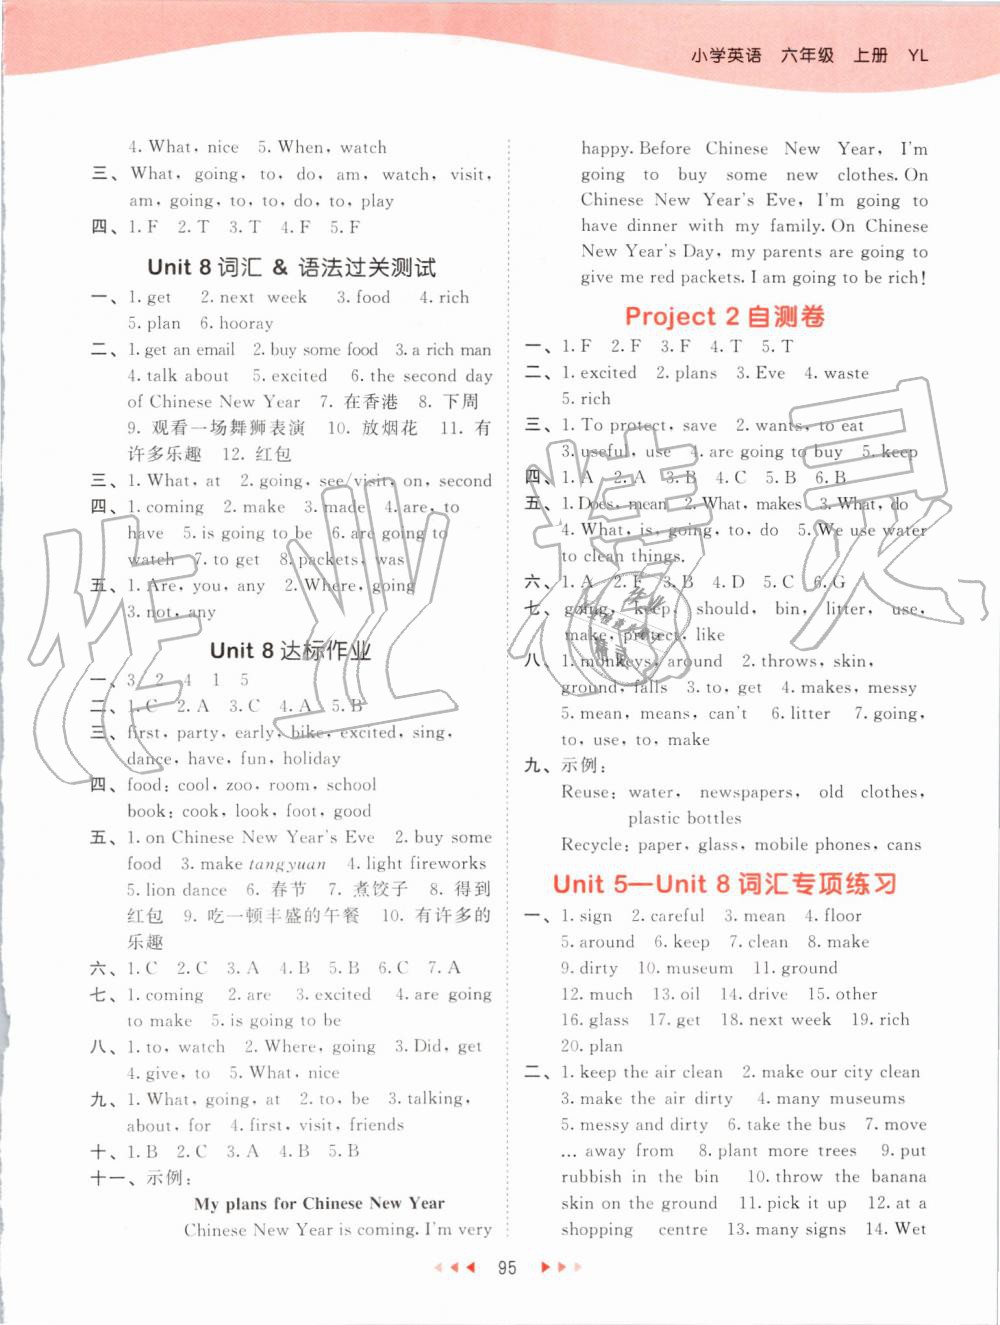 小学英语 六年级 上册 YL
4. What, nice 5. When, watch
三、What, going, to, do, am, watch, visit,
am, going, to, to, do, to, play
四、1. F 2. T 3. T 4. F 5. F
Unit 8 词汇 & 语法过关测试
一、1. get 2. next week 3. food 4. rich
5. plan 6. hooray
二、1. get an email 2. buy some food 3. a rich man
4. talk about 5. excited 6. the second day
of Chinese New Year 7. 在香港 8. 下周
9. 观看一场舞狮表演 10. 放烟花 11. 有
许多乐趣 12. 红包
三、1. What, at 2. going, see/visit, on, second
四、1. coming 2. make 3. made 4. are, to
have 5. is going to be 6. are going to
watch 7. to get 8. packets, was
五、1. Are, you, any 2. Where, going
3. not, any
Unit 8 达标作业
一、3 2 4 1 5
二、1. C 2. A 3. C 4. A 5. B
三、first, party, early, bike, excited, sing,
dance, have, fun, holiday
四、food: cool, zoo, room, school
book: cook, look, foot, good
五、1. on Chinese New Year's Eve 2. buy some
food 3. make tangyuan 4. light fireworks
5. lion dance 6. 春节 7. 煮饺子 8. 得到
红包 9. 吃一顿丰盛的午餐 10. 有许多的
乐趣
六、1. C 2. C 3. A 4. B 5. B 6. C 7. A
七、1. coming 2. are 3. excited 4. are going
to make 5. is going to be
八、1. to, watch 2. Where, going 3. Did, get
4. give, to 5. What, nice
九、1. What, going, at 2. to, be 3. talking,
about, for 4. first, visit, friends
十、1. B 2. C 3. A 4. B 5. B
十一、示例:
My plans for Chinese New Year
Chinese New Year is coming. I'm very
happy. Before Chinese New Year, I'm
going to buy some new clothes. On
Chinese New Year's Eve, I'm going to
have dinner with my family. On Chinese
New Year's Day, my parents are going to
give me red packets. I am going to be rich!
Project 2 自测卷
一、1. F 2. F 3. F 4. T 5. T
二、1. excited 2. plans 3. Eve 4. waste
5. rich
三、1. To protect, save 2. wants, to eat
3. useful, use 4. are going to buy 5. keep
四、1. A 2. A 3. B 4. C 5. B 6. B
五、1. Does, mean 2. What, makes 3. What, do
4. What, is, going, to, do 5. We use water
to clean things.
六、1. A 2. F 3. B 4. D 5. C 6. G
七、going, keep, should, bin, litter, use,
make, protect, like
八、1. monkeys, around 2. throws, skin,
ground, falls 3. to, get 4. makes, messy
5. mean, means, can't 6. litter 7. going,
to, use, to, make
九、示例:
Reuse: water, newspapers, old clothes,
plastic bottles
Recycle: paper, glass, mobile phones, cans
Unit 5—Unit 8 词汇专项练习
一、1. sign 2. careful 3. mean 4. floor
5. around 6. keep 7. clean 8. make
9. dirty 10. museum 11. ground
12. much 13. oil 14. drive 15. other
16. glass 17. get 18. next week 19. rich
20. plan
二、1. keep the air clean 2. make our city clean
3. make the air dirty 4. many museums
5. messy and dirty 6. take the bus 7. move
... away from 8. plant more trees 9. put
rubbish in the bin 10. throw the banana
skin on the ground 11. pick it up 12. at a
shopping centre 13. many signs 14. Wet
95
作业精灵